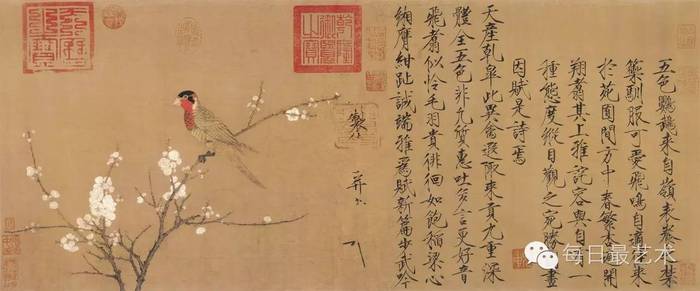 五色鸚鵡來自嶺表養之禁
籞馴服可愛飛鳴自適往來
於苑囿間方中春繁杏遍開
翔翥其上雅詫容與自有一
種態度縱目觀之宛勝圖畫
因賦是詩焉
天產乾皋此異禽遐陬來貢九重深
體全五色非凡質惠吐多言更好音
飛翥似憐毛羽貴徘徊如飽稻粱心
緗膺紺趾誠端雅爲賦新篇步武吟
每日最艺术